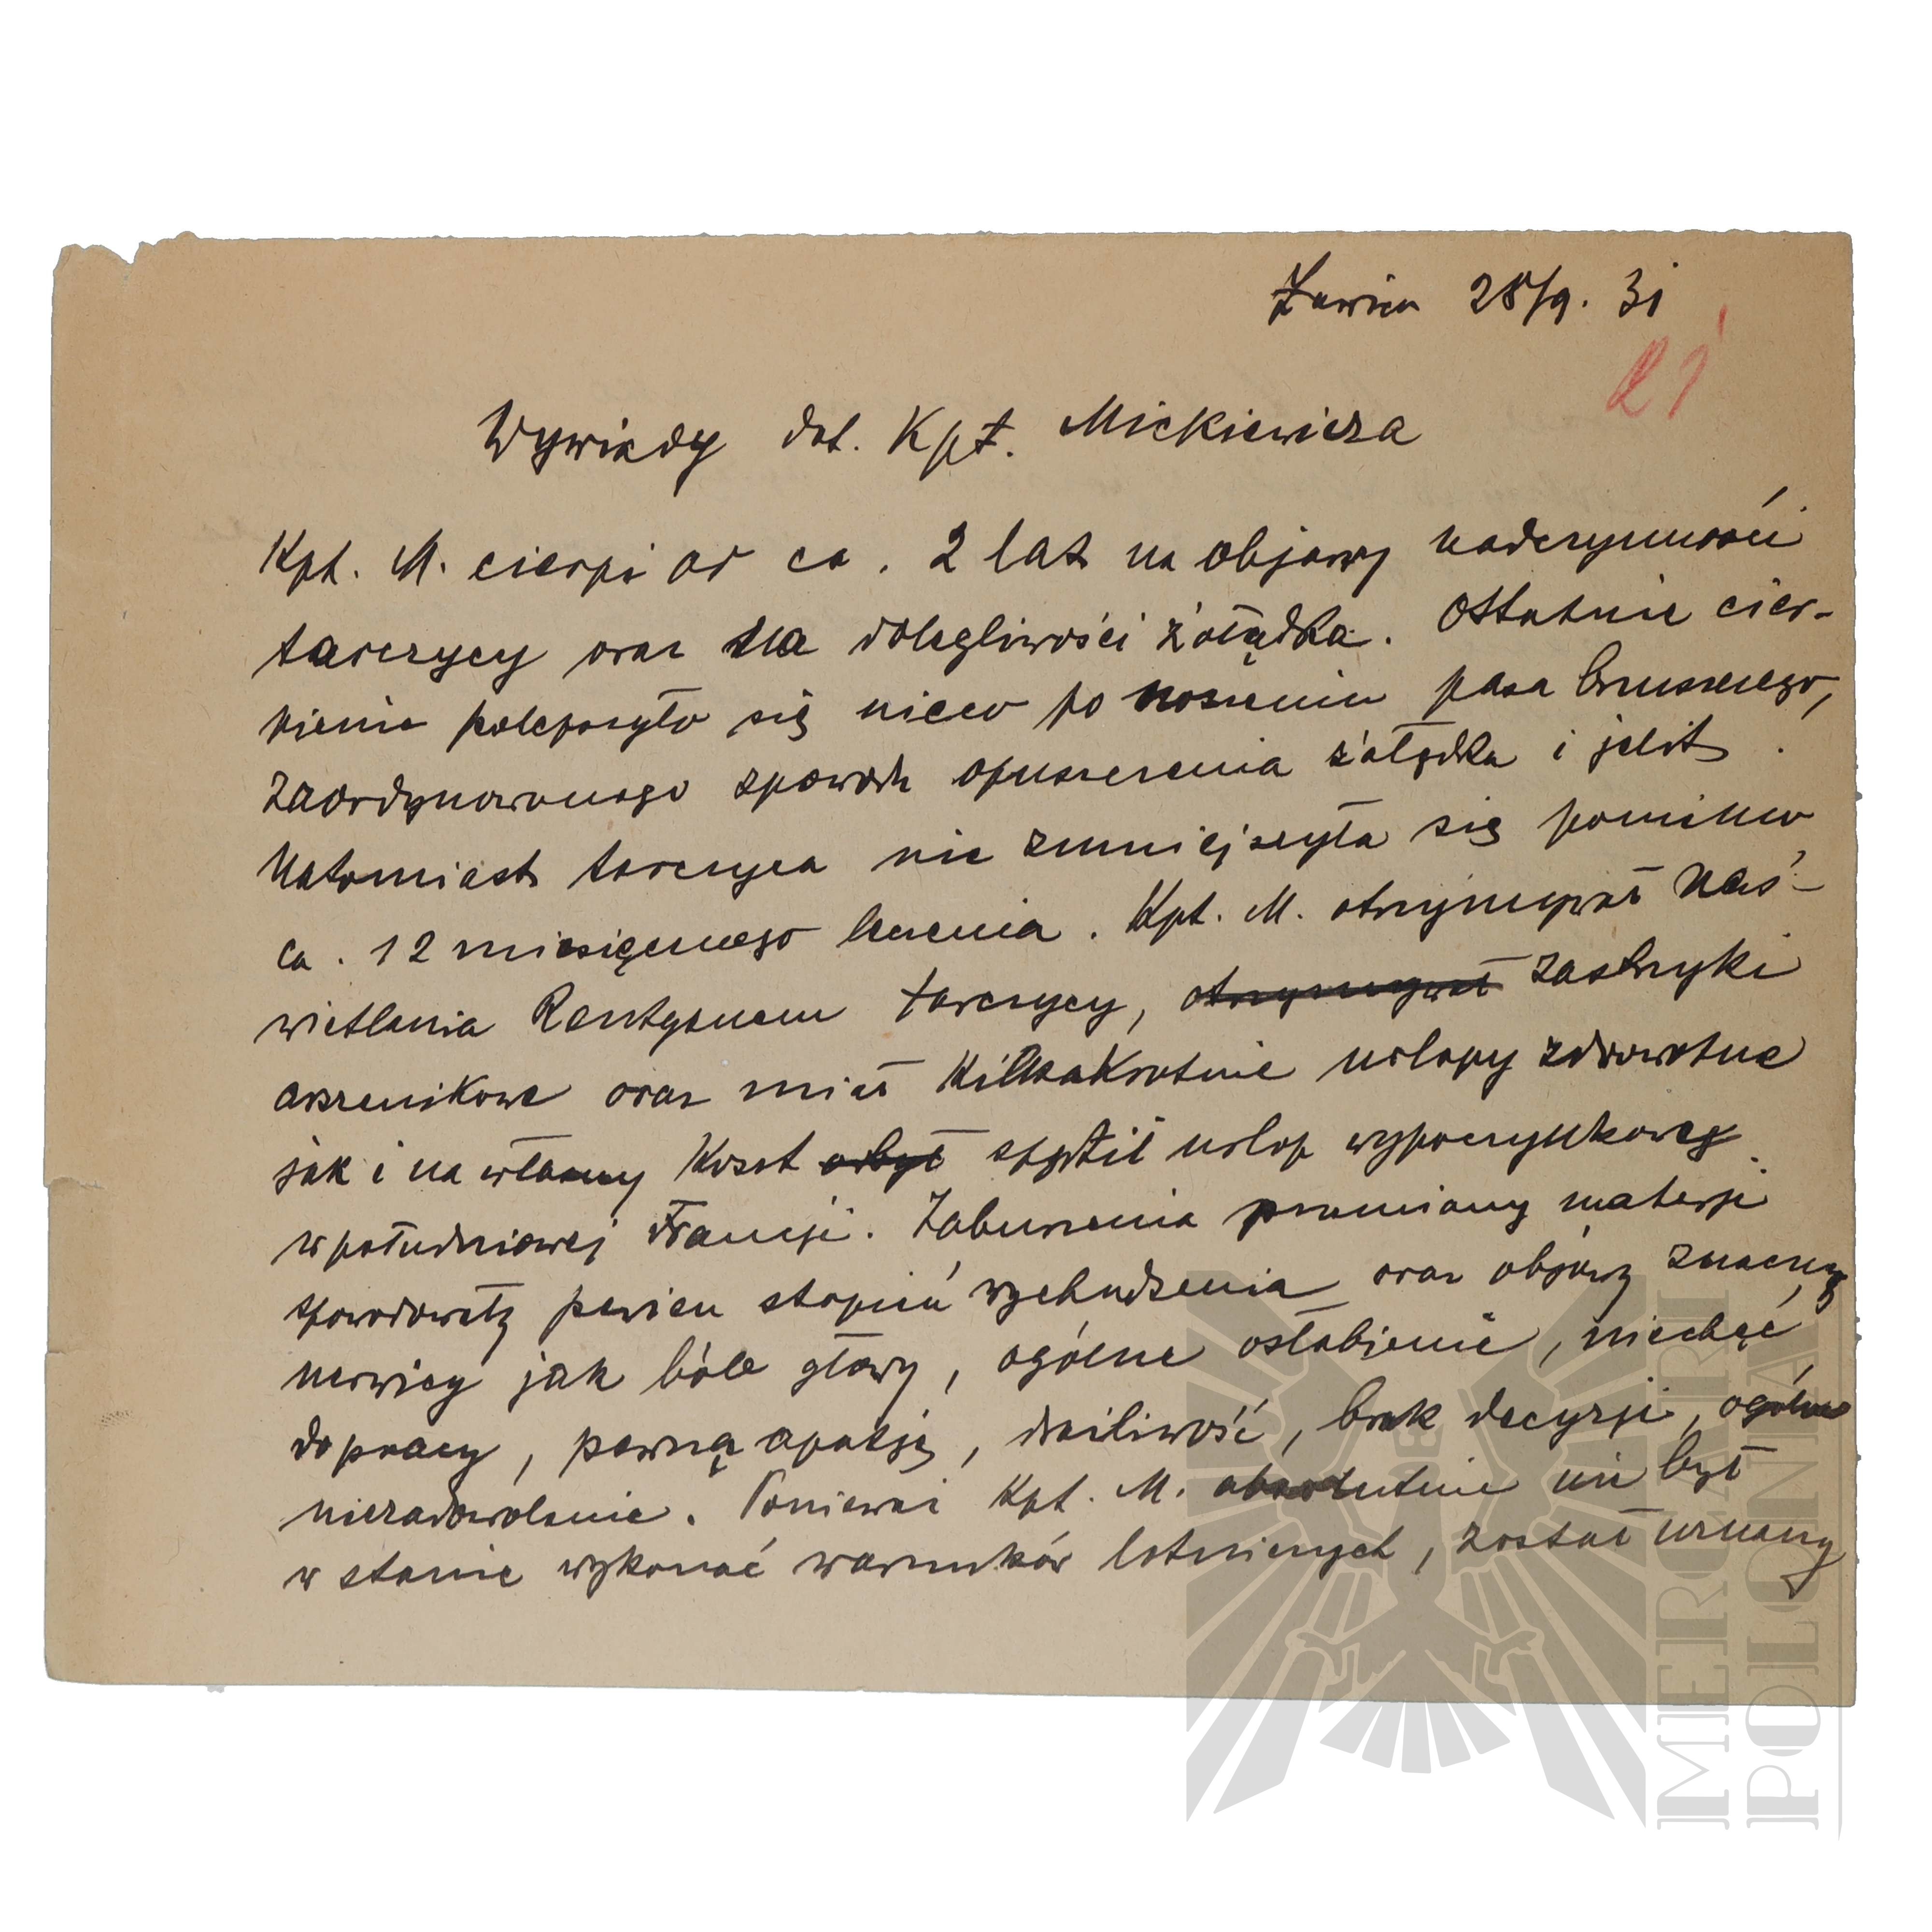 Ławica 28/9. 31
21
Wywiady dot. Kpt. Mickiewicza
Kpt. M. cierpi od ca. 2 lat na objawy nadczynności
tarczycy oraz na dolegliwości żołądka. Ostatnie cier-
pienie polepszyło się nieco po noszeniu pasa brusznego,
zaordynowanego spowodu opuszczenia żołądka i jelit.
Natomiast tarczyca nie zmniejszyła się pomimo
ca. 12 miesięcznego leczenia. Kpt. M. otrzymywał naś-
wietlania Rentgenem tarczycy, otrzymywał zastrzyki
arszenikowe oraz miał kilkakrotnie urlopy zdrowotne
jak i na własny koszt odbył spędził urlop wypoczynkowy
w południowej Francji. Zaburzenia przemiany materji
spowodowały pewien stopień wychudzenia oraz objawy znacznej
nerwicy jak bóle głowy, ogólne osłabienie, niechęć
do pracy, pewną apatję, draźliwość, brak decyzji, ogólne
niezadowolenie. Ponieważ Kpt. M. absolutnie nie był
w stanie wykonać warunków lotniczych, został uznany
MEMORABILIA
POLONIAE